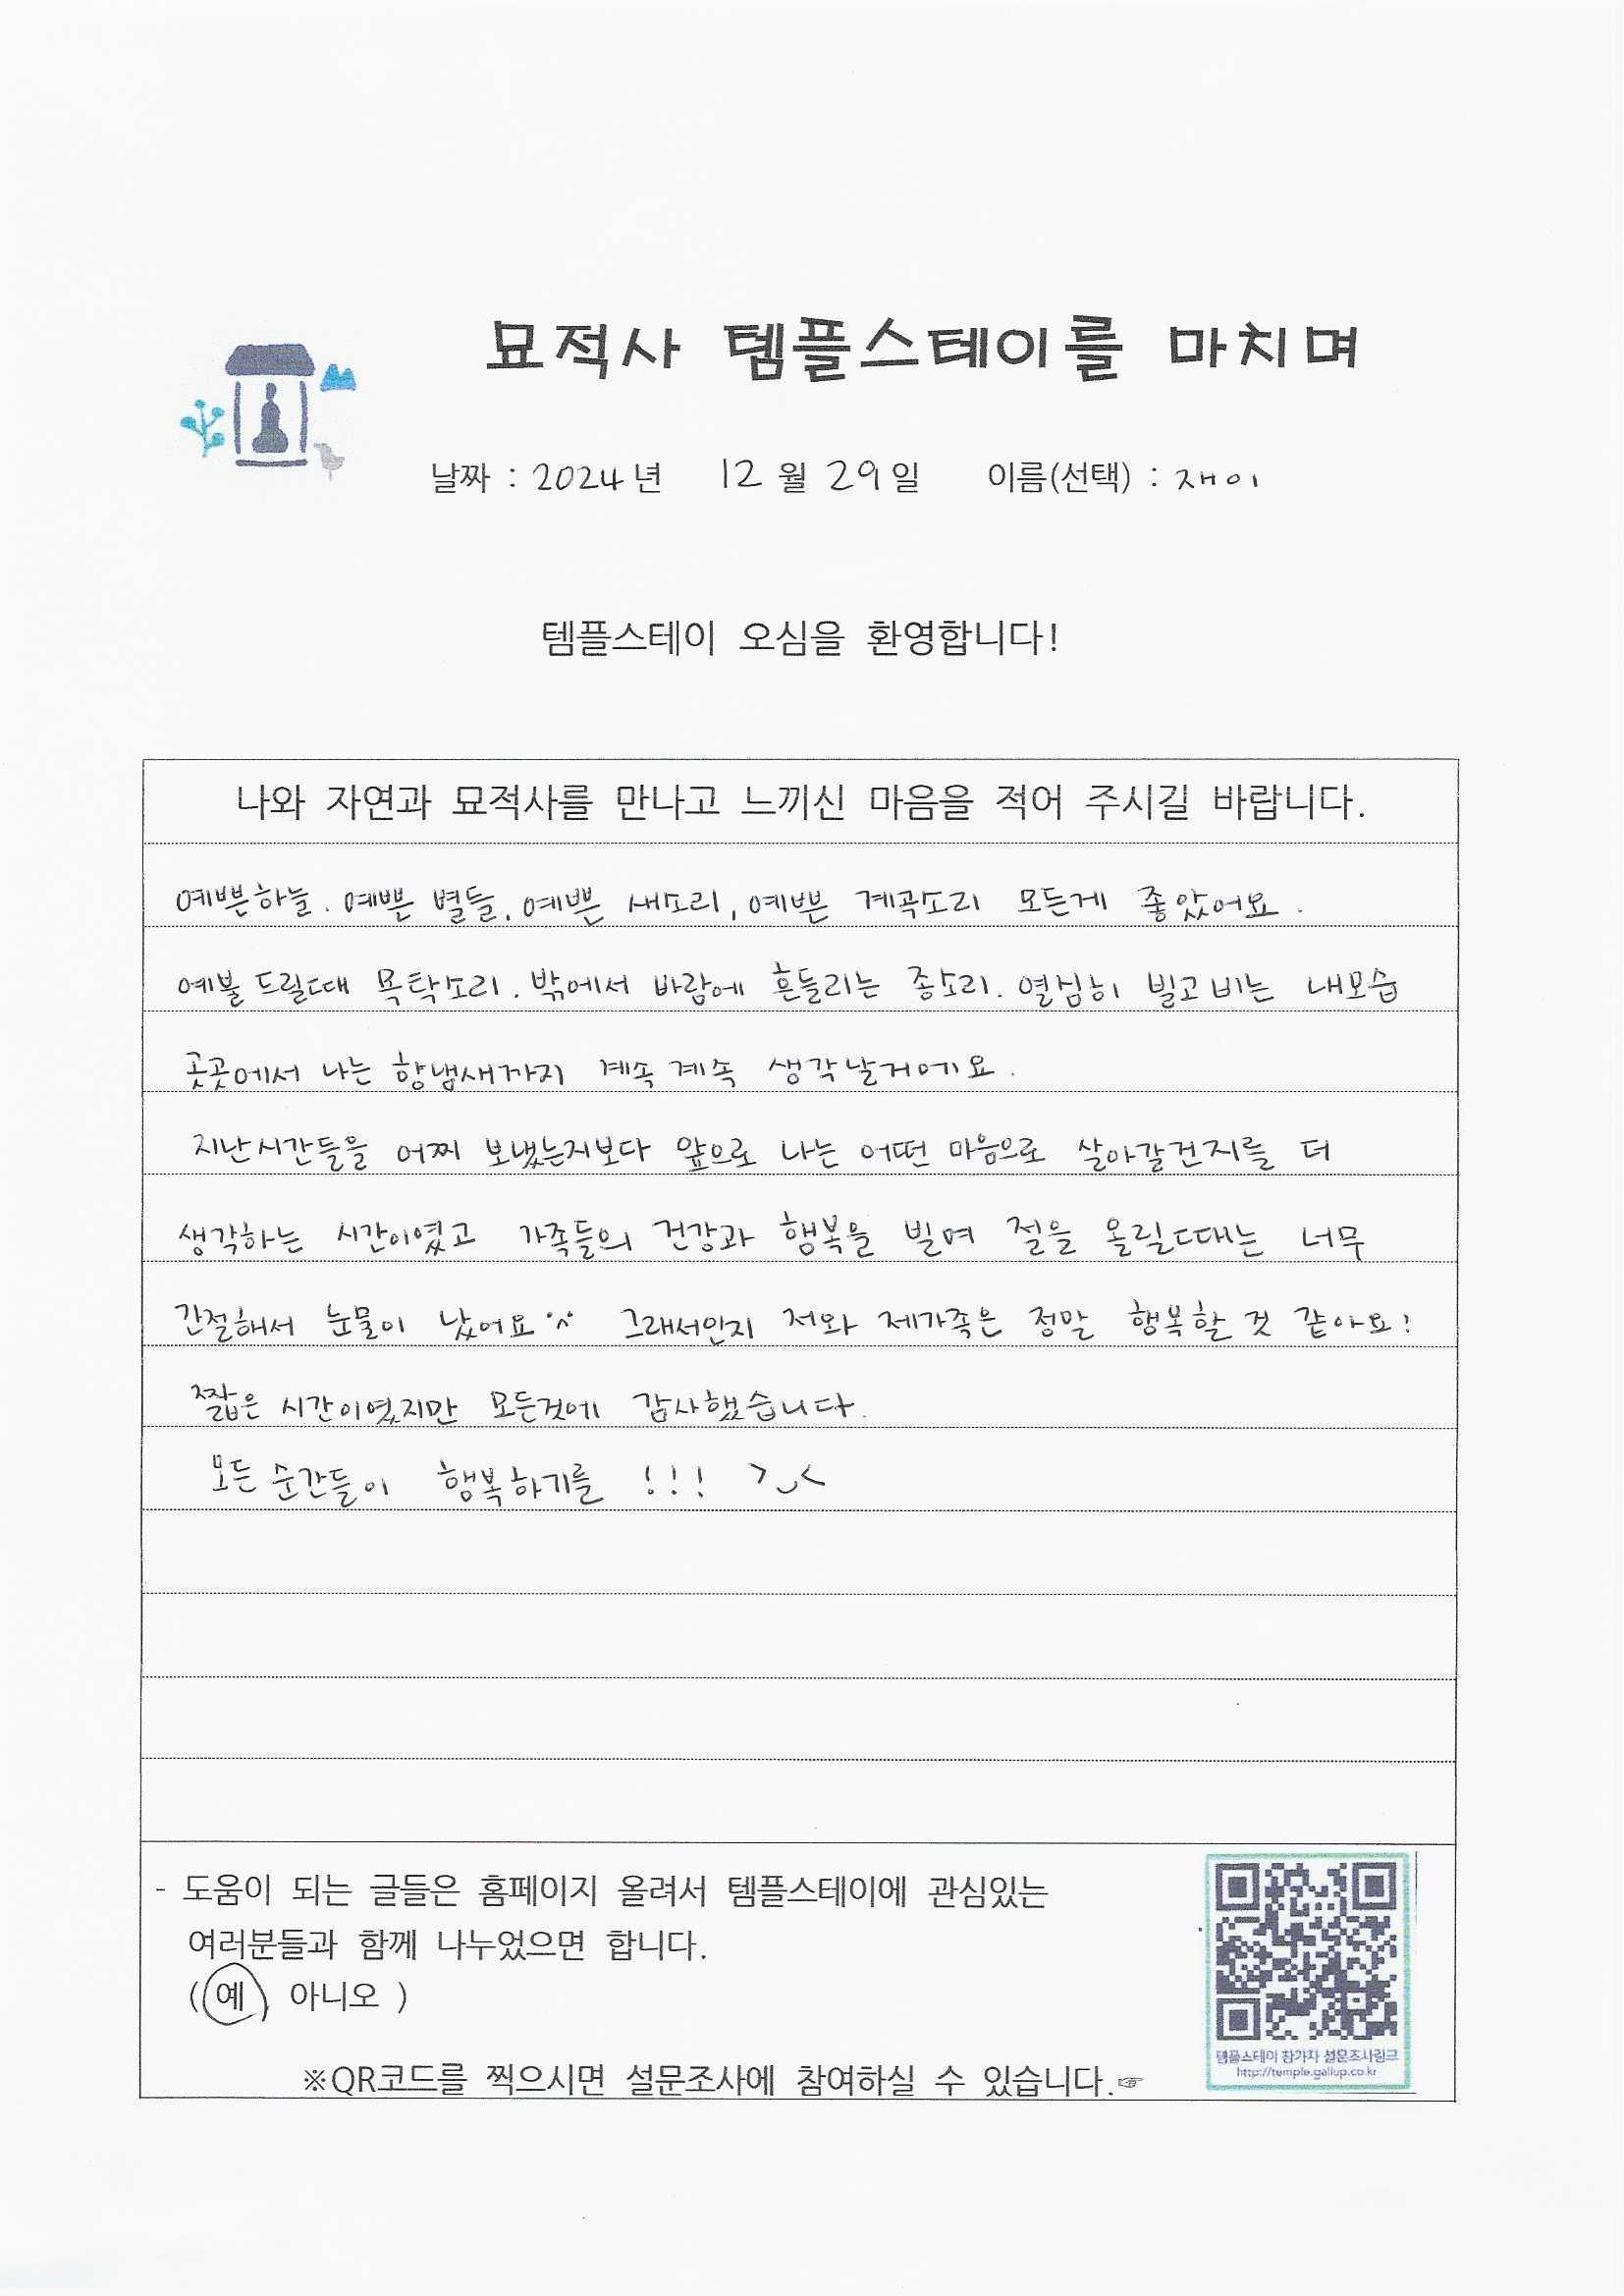 묘적사 템플스테이를 마치며
날짜 : 2024년 12월 29일 이름(선택) : 재이
템플스테이 오심을 환영합니다!
나와 자연과 묘적사를 만나고 느끼신 마음을 적어 주시길 바랍니다.
예쁜하늘. 예쁜 별들, 예쁜 새소리, 예쁜 계곡소리 모든게 좋았어요.
예불 드릴때 목탁소리. 밖에서 바람에 흔들리는 종소리. 열심히 빌고 비는 내모습
곳곳에서 나는 향냄새까지 계속 계속 생각날거에요.
지난시간들을 어찌 보냈는지보다 앞으로 나는 어떤 마음으로 살아갈건지를 더
생각하는 시간이였고 가족들의 건강과 행복을 빌며 절을 올릴때는 너무
간절해서 눈물이 났어요^^ 그래서인지 저와 제가족은 정말 행복할 것 같아요!
짧은 시간이였지만 모든것에 감사했습니다.
모든 순간들이 행복하기를 !!! >◡<
- 도움이 되는 글들은 홈페이지 올려서 템플스테이에 관심있는
여러분들과 함께 나누었으면 합니다.
(예, 아니오 )
템플스테이 참가자 설문조사링크
http://temple.gallup.co.kr
※QR코드를 찍으시면 설문조사에 참여하실 수 있습니다.☞